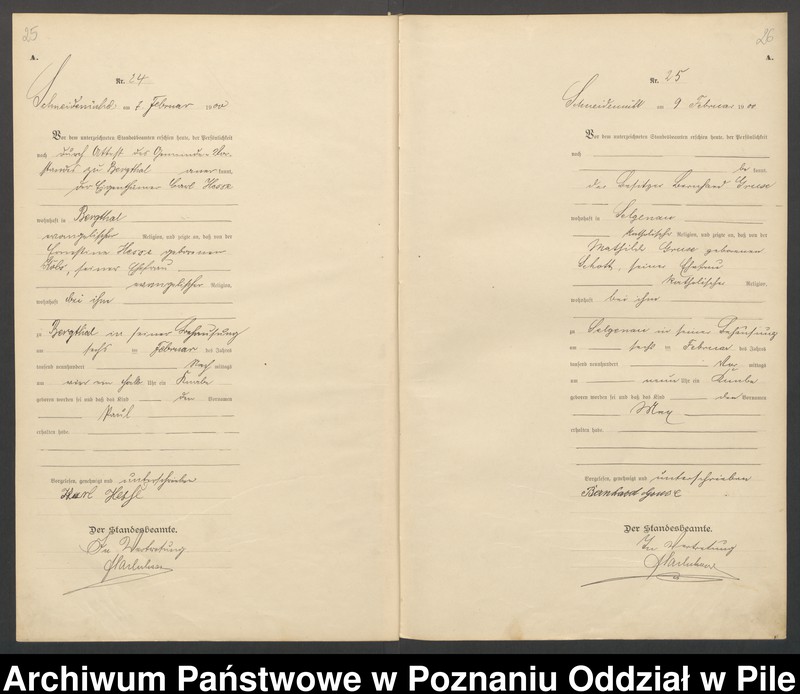 25
A.
Nr. 24
Schneidemühl am 7. Februar 1900
Vor dem unterzeichneten Standesbeamten erschien heute, der Persönlichkeit
nach durch Attest des Gemeinde-Vor-
standes zu Bergthal anerkannt,
der Eigenthümer Carl Hesse
wohnhaft in Bergthal
evangelischer Religion, und zeigte an, daß von der
Ernestine Hesse geborenen
seiner Ehefrau
evangelischer Religion,
wohnhaft bei ihm
zu Bergthal in seiner Behausung
am sechs ten Februar des Jahres
tausend neunhundert Nach mittags
um ein halb Uhr ein Knabe
geboren worden sei und daß das Kind den Vornamen
Paul
erhalten habe.
Vorgelesen, genehmigt und unterschrieben
Karl Heße
Der Standesbeamte.
In Vertretung
26
A.
Nr. 25
Schneidemühl am 9 Februar 1900
Vor dem unterzeichneten Standesbeamten erschien heute, der Persönlichkeit
nach
be kannt,
der Besitzer Bernhard Gruse
wohnhaft in Selgenau
katholischer Religion, und zeigte an, daß von der
Mathilde Gruse geborenen
Schott, seiner Ehefrau
katholischer Religion,
wohnhaft bei ihm
zu Selgenau in seiner Behausung
am sechs ten Februar des Jahres
tausend neunhundert Vor mittags
um neun Uhr ein Knabe
geboren worden sei und daß das Kind den Vornamen
Max
erhalten habe.
Vorgelesen, genehmigt und unterschrieben
Bernhard Gruse
Der Standesbeamte.
In Vertretung
Archiwum Państwowe w Poznaniu Oddział w Pile